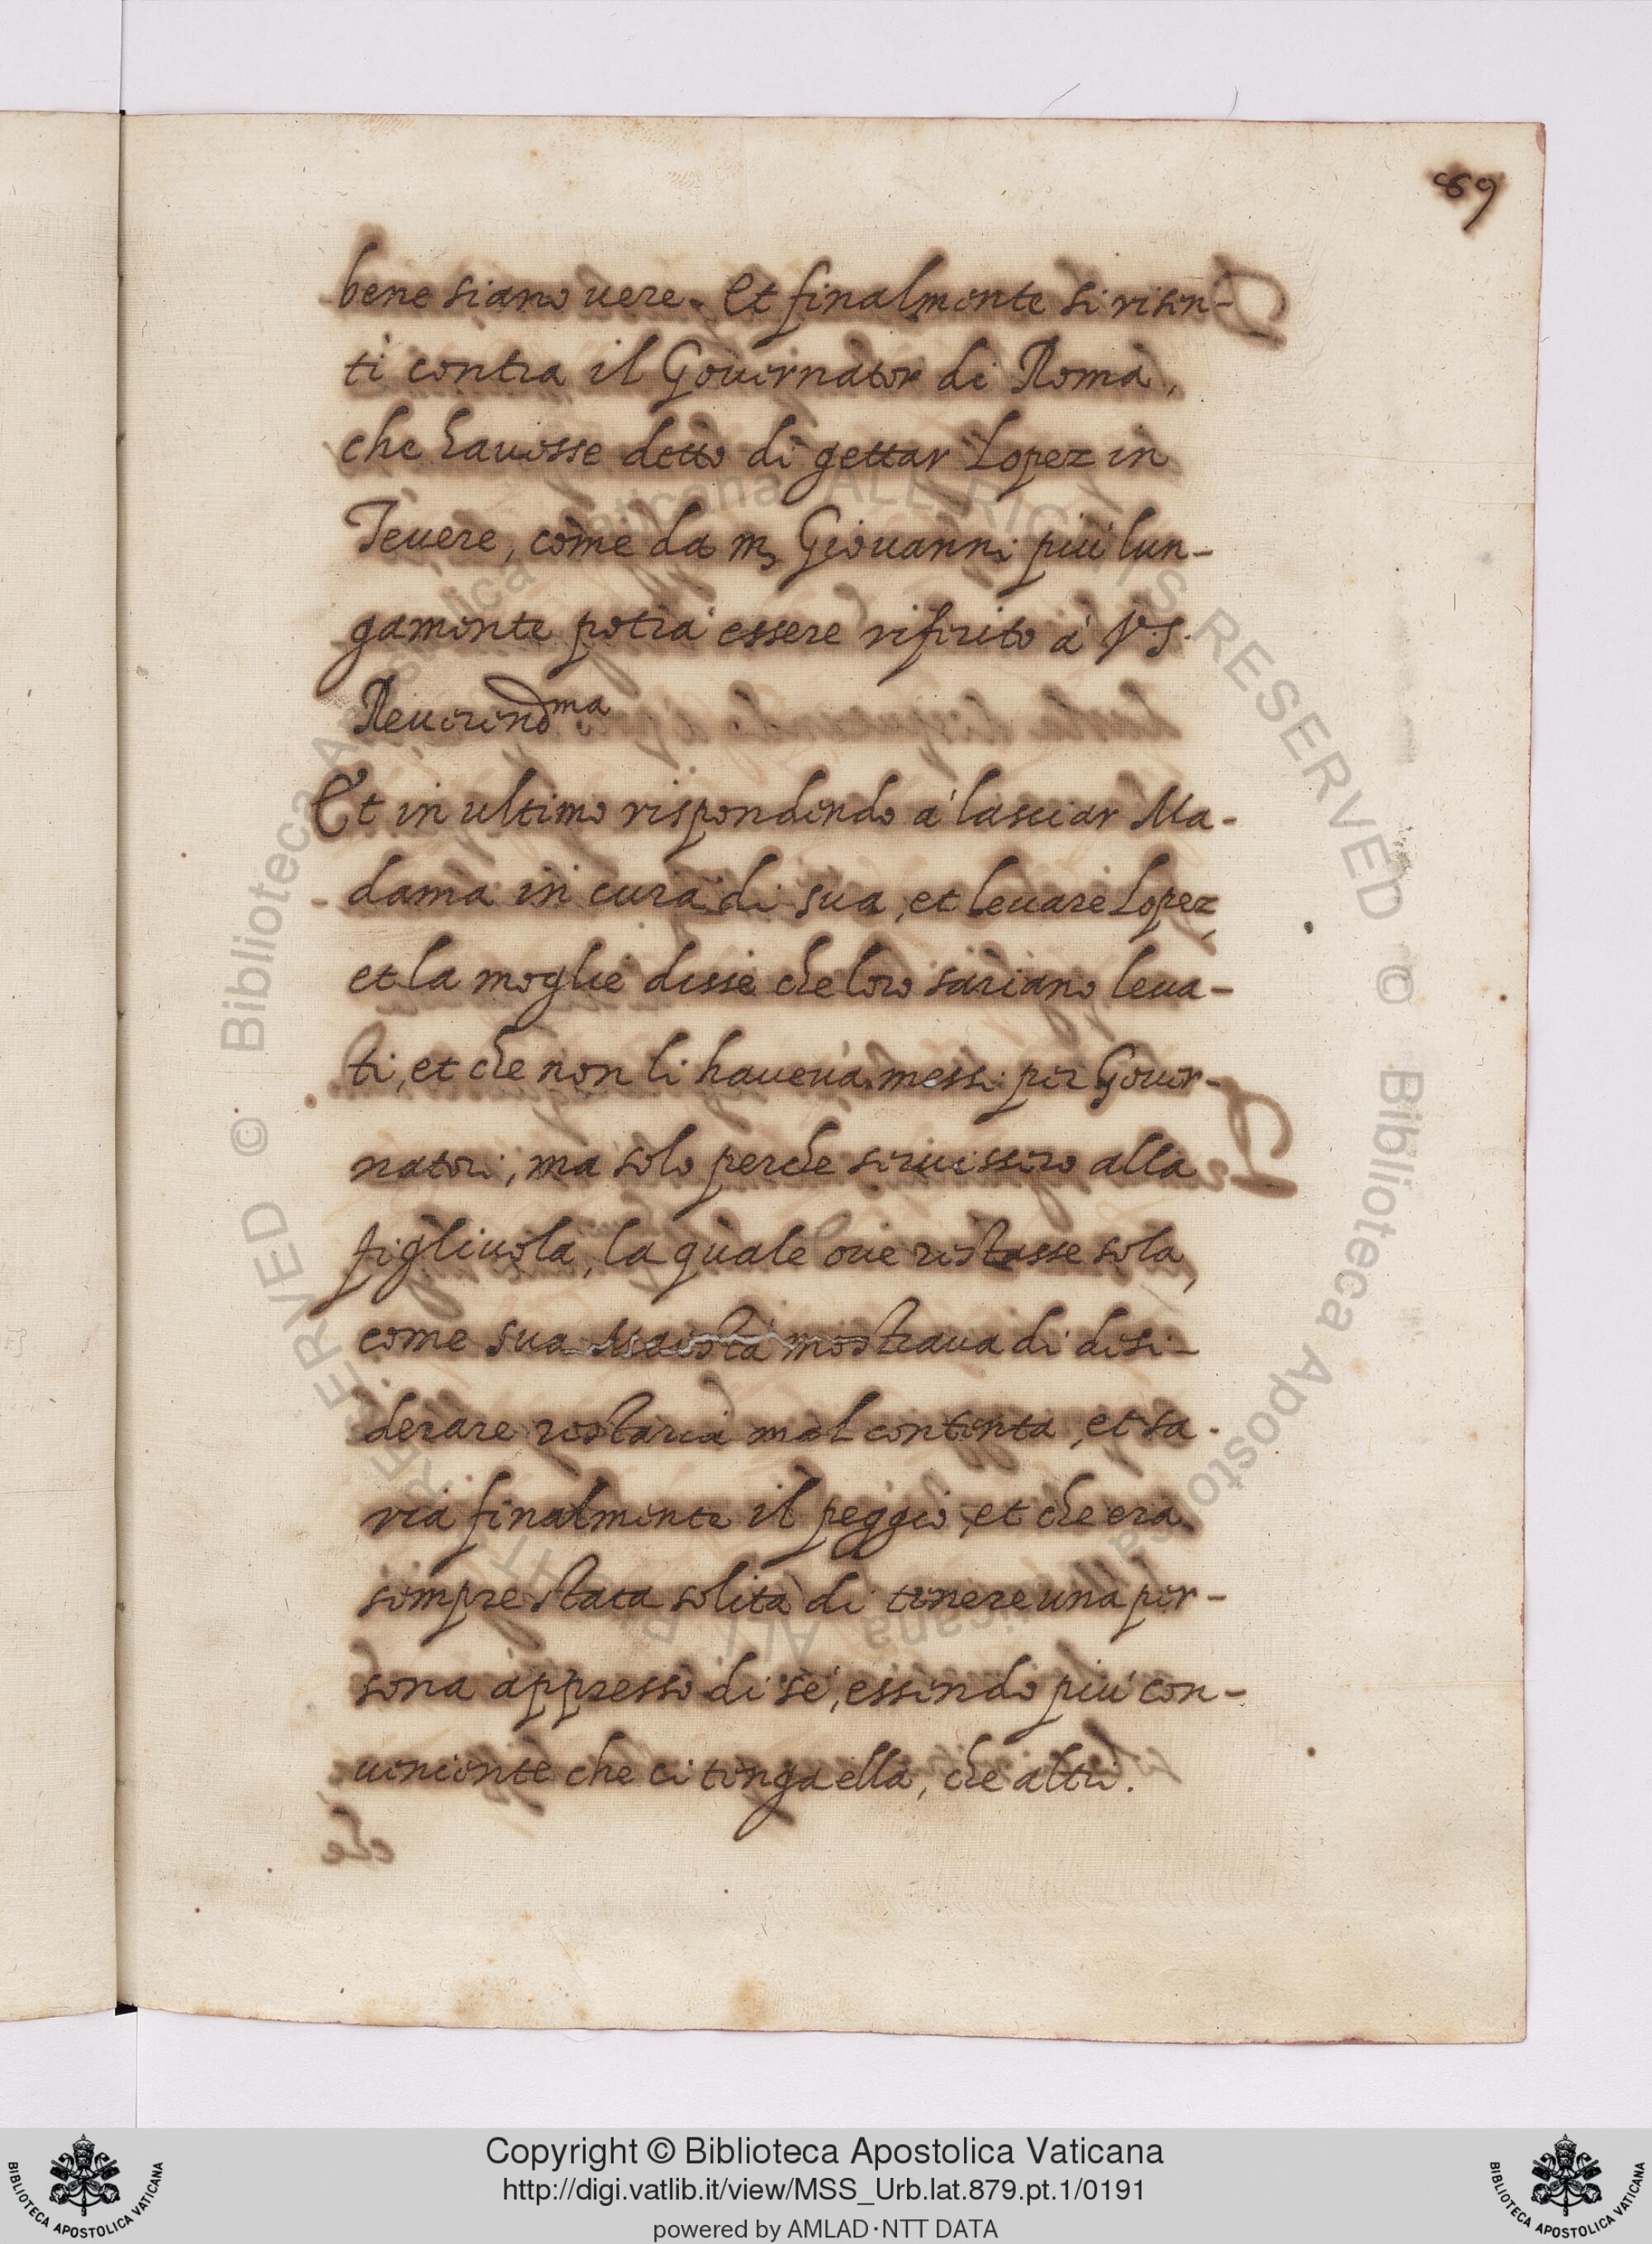 89
bene siano uere. Et finalmente si risen-
tì contra il Gouernator di Roma,
che hauesse detto di gettar Lopez in
Teuere, come da m. Giouanni più lun-
gamente potrà essere riferito à V.S.
Reuerendma
Et in ultimo rispondendo à lasciar Ma-
dama in cura di sua, et leuare Lopez,
et la moglie disse che loro sariano leua-
ti, et che non li haueua messi per Gouer-
natori, ma solo perche seruissero alla
figliuola, la quale oue restasse sola,
come sua Maestà mostraua di desi-
derare restaria mal contenta, et sa-
ria finalmente il peggio, et che era
sempre stata solita di tenere una per-
sona appresso di sé, essendo più con-
ueniente che ci tenga ella, che altri.
© Biblioteca Apostolica Vaticana ALL RIGHTS RESERVED © Biblioteca Apostolica Vaticana ALL RIGHTS RESERVED
Copyright © Biblioteca Apostolica Vaticana
http://digi.vatlib.it/view/MSS_Urb.lat.879.pt.1/0191
powered by AMLAD·NTT DATA
BIBLIOTECA APOSTOLICA VATICANA
BIBLIOTECA APOSTOLICA VATICANA